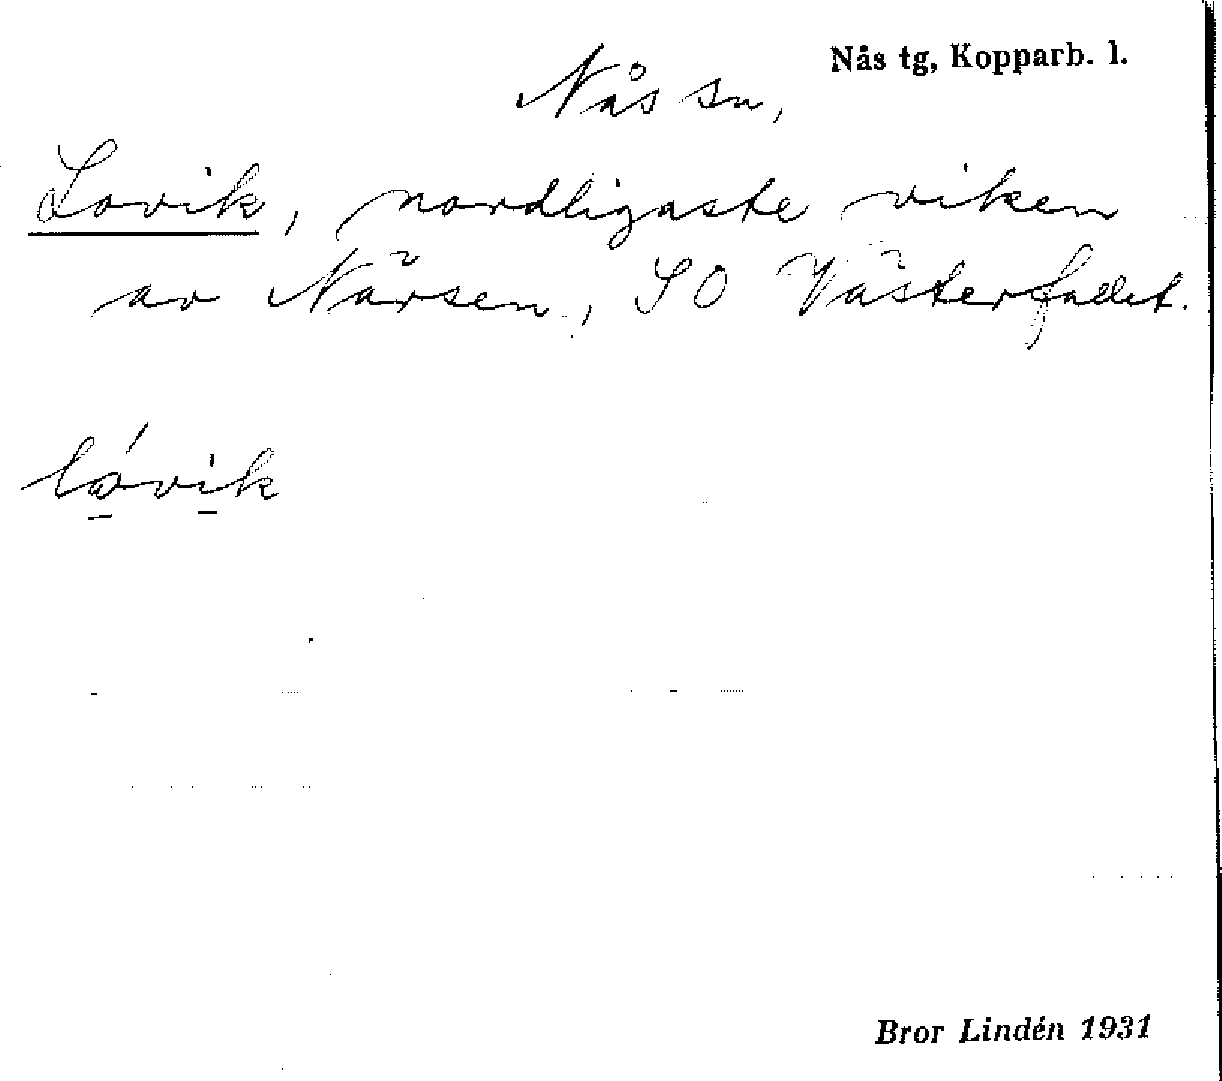 Nås tg, Kopparb. l.
Nås sn,
Lovik, nordligaste viken
av Närsen, SO Västerfallet.
lóvik
Bror Lindén 1931